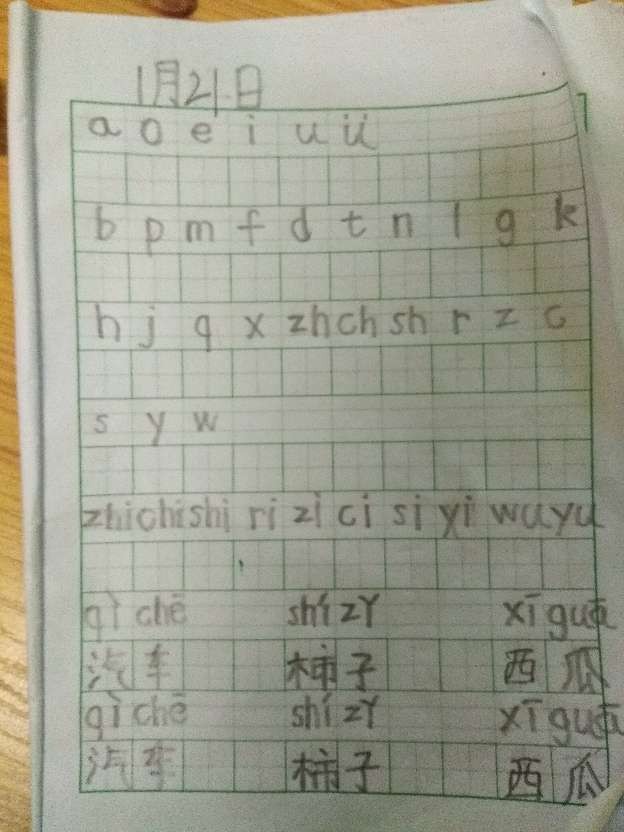 1月21日
a o e i u ü
b p m f d t n l g k
h j q x zh ch sh r z c
s y w
zhi chi shi ri zi ci si yi wu yu
qì chē shí zǐ xī guā
汽车 柿子 西瓜
qì chē shí zǐ xī guā
汽车 柿子 西瓜